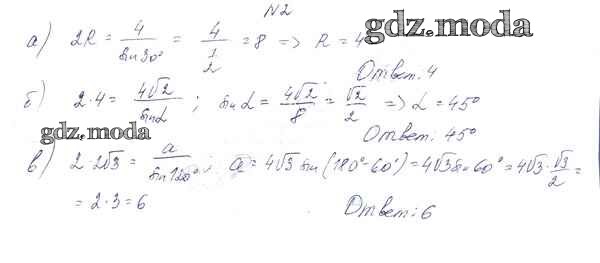 N2
gdz.moda
а) 2R = 4/sin30° = 4/(1/2) = 8 => R = 4
Ответ: 4
б) 2·4 = 4√2/sinα ; sinα = 4√2/8 = √2/2 => α = 45°
gdz.moda
Ответ: 45°
в) 2·2√3 = a/sin120° ; a = 4√3 sin(180°-60°) = 4√3 sin 60° = 4√3·√3/2 =
= 2·3 = 6
Ответ: 6